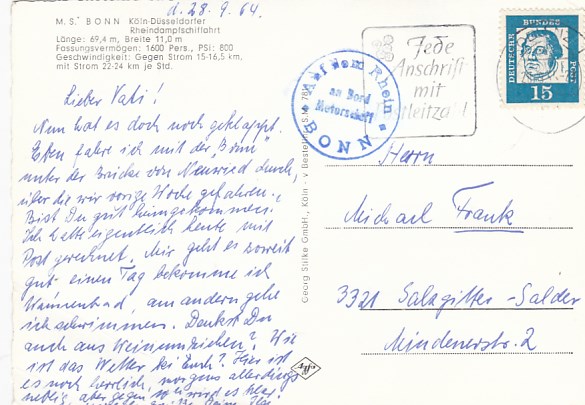 d. 28. 9. 64.
M.S. BONN Köln-Düsseldorfer
Rheindampfschiffahrt
Länge: 69,4 m, Breite 11,0 m
Fassungsvermögen: 1600 Pers., PSi: 800
Geschwindigkeit: Gegen Strom 15-16,5 km,
mit Strom 22-24 km je Std.
Lieber Vati!
Nun hat es doch noch geklappt.
Eben fahre ich mit der „Bonn"
unter der Brücke von Neuwied durch,
über die wir vorige Woche gefahren.
Bist Du gut heimgekommen.
Ich hatte eigentlich heute mit
Post gerechnet. Mir geht es soweit
gut einen Tag bekomme ich
Wannenbad, am andern gehe
ich schwimmen. Denkst Du
auch ans? Wie
ist das Wetter bei Euch? Hier ist
es noch herrlich, morgens allerdings
neblig, aber gegen wird es klar.
Georg Stilke GmbH., Köln · v Bestell Nr. S.K. 78
Auf dem Rhein
an Bord
Motorschiff
BONN
Jede
Anschrift
mit
Postleitzahl
DEUTSCHE BUNDESPOST
15
Herrn
Michael Frank
3321 Salzgitter-Salder
Mindenerstr. 2